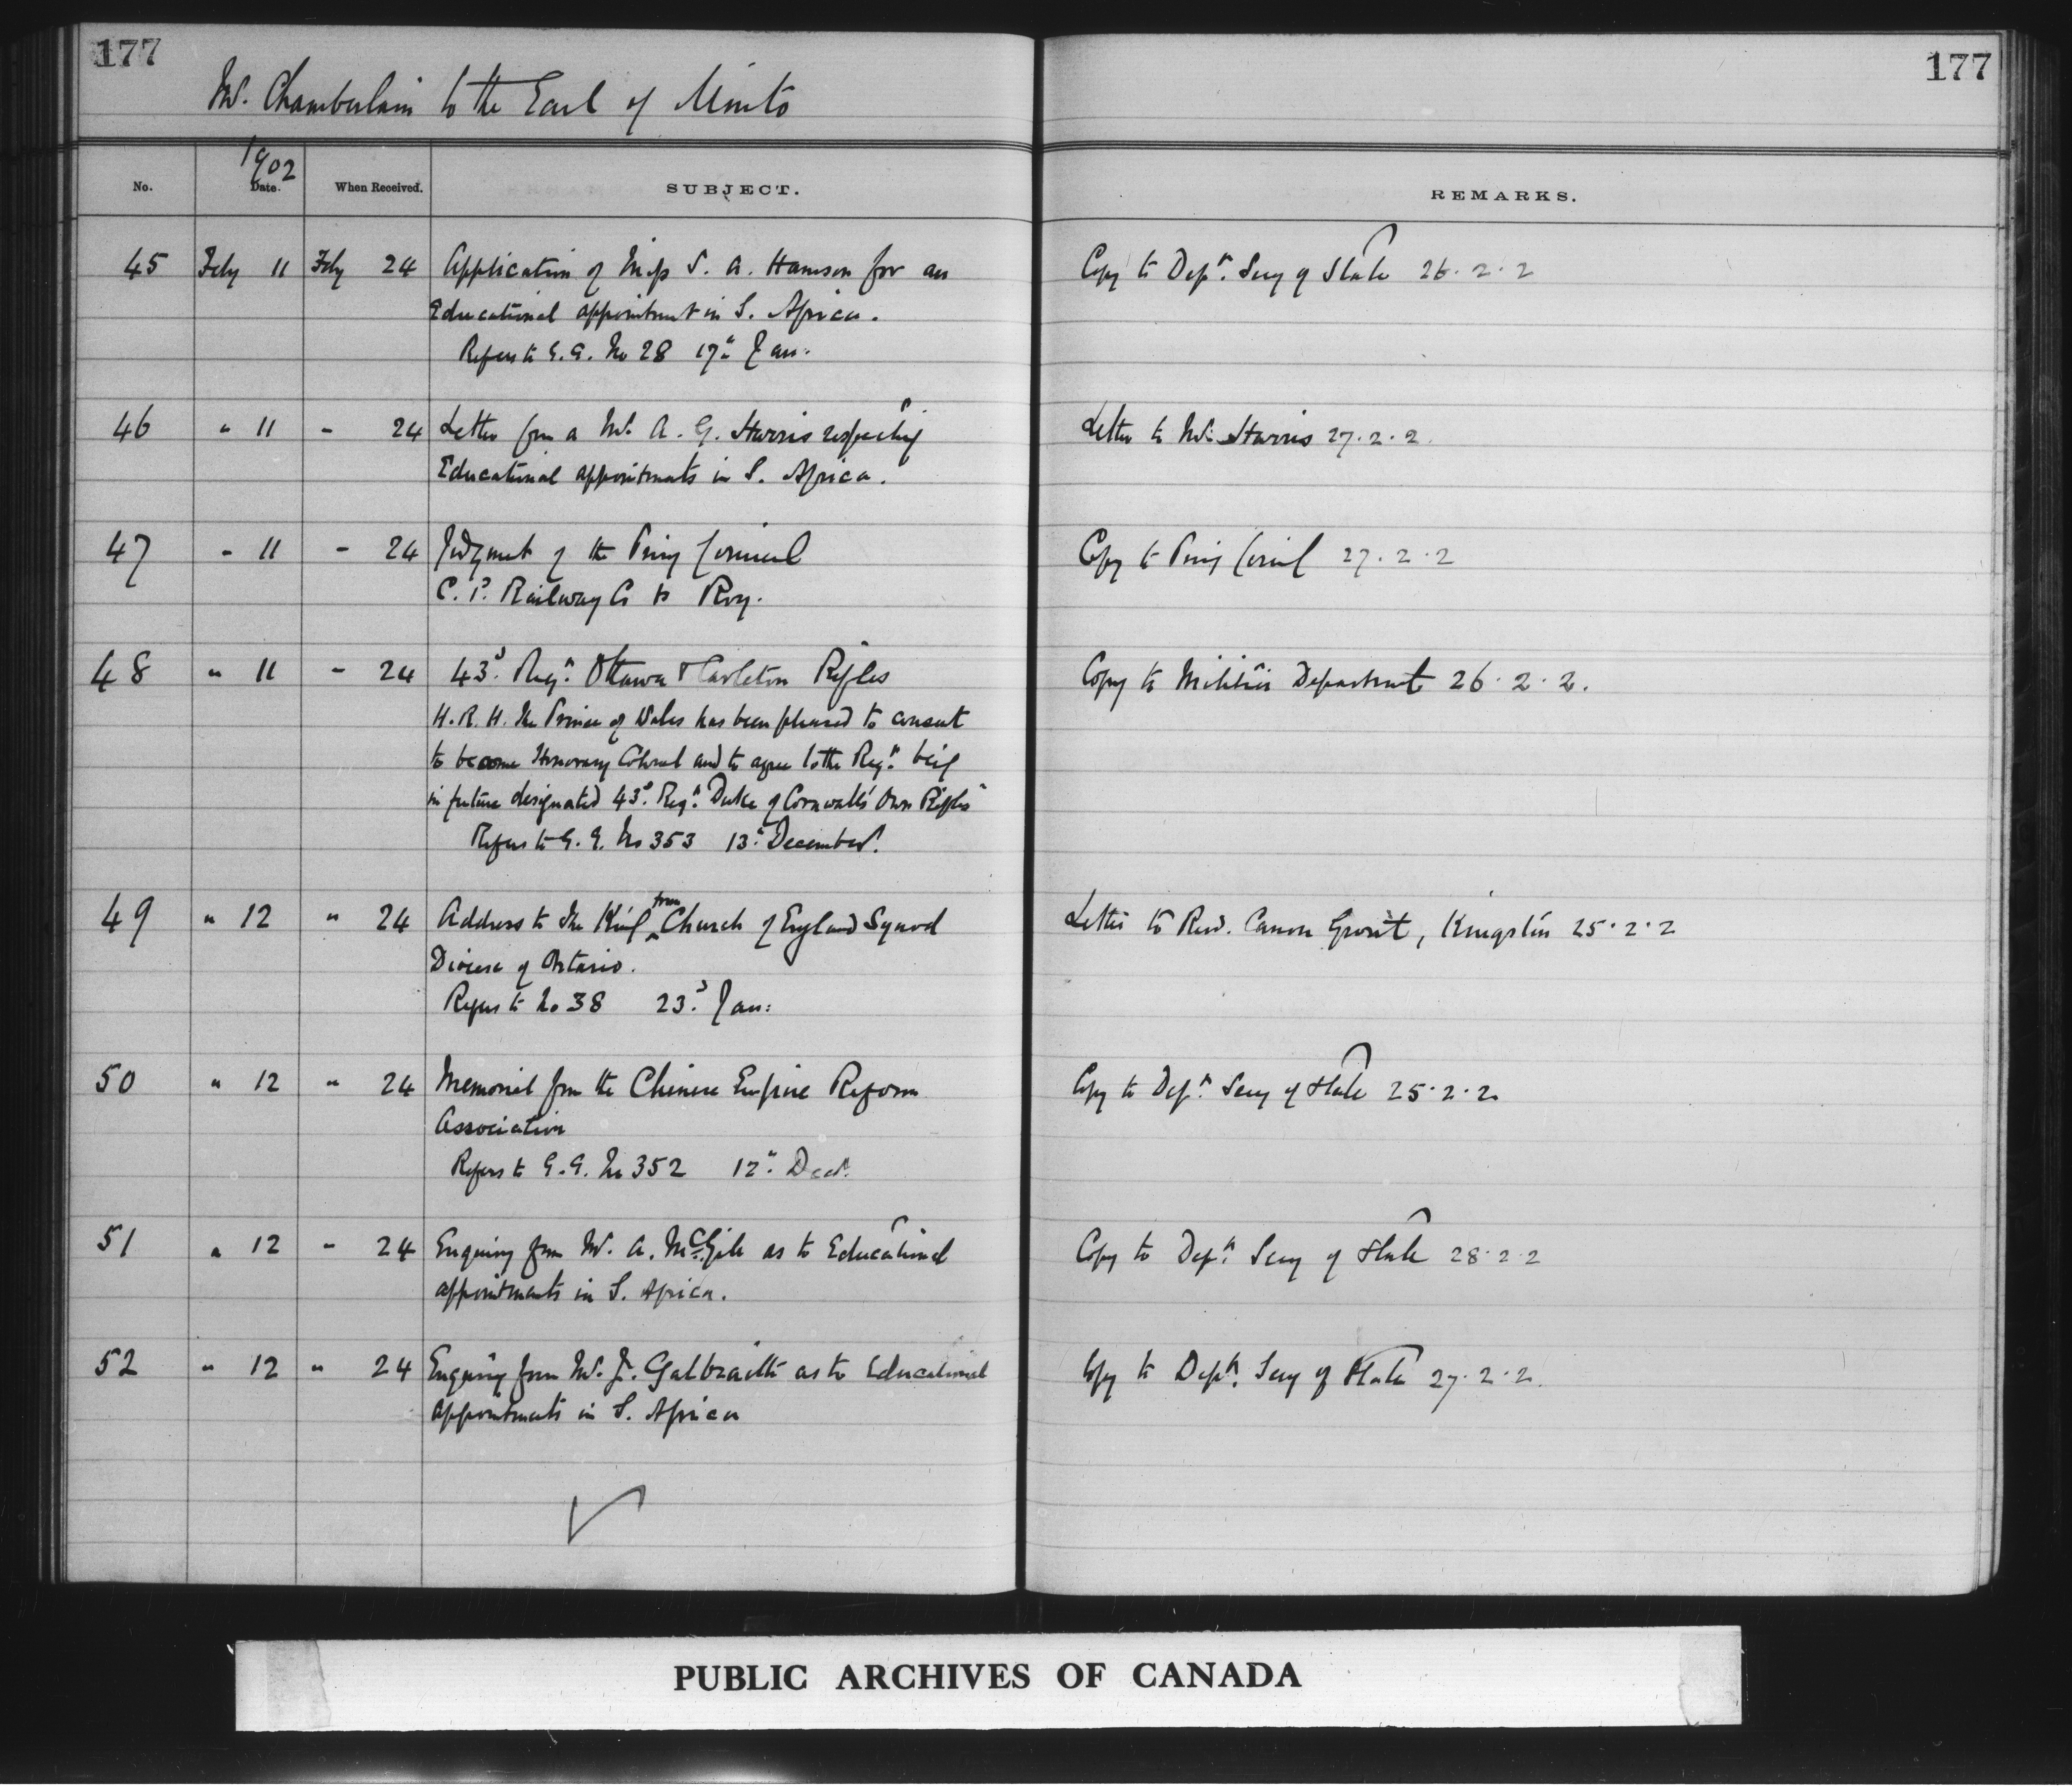 177
177
Mr. Chamberlain to the Earl of Minto
1902
No.
Date.
When Received.
SUBJECT.
REMARKS.
45 Feby 11 Feby 24 Application of Miss S. A. for an Copy to Dept. Secy of State 26.2.2
Educational appointment in S. Africa.
Refers to G.G. No 28 17th Jan:
46 " 11 - 24 Letter from a Mr. A. G. Harris respecting Letter to Mr. Harris 27.2.2.
Educational appointments in S. Africa.
47 " 11 - 24 Judgment of the Privy Council Copy to Privy Council 27.2.2
C.P. Railway Co vs Roy.
48 " 11 - 24 43d. Regt. Ottawa & Carleton Rifles Copy to Militia Department 26.2.2.
H.R.H. The Prince of Wales has been pleased to consent
to become Honorary Colonel and to agree to the Regt. being
in future designated 43d. Regt. Duke of Cornwall's Own Rifles"
Refers to G.G. No 353 13th December.
49 " 12 " 24 Address to The King from Church of England Synod Letter to Revd. Canon Grout, Kingston 25.2.2
Diocese of Ontario.
Refers to No 38 23d. Jan:
50 " 12 " 24 Memorial from the Chinese Empire Reform Copy to Dept. Secy of State 25.2.2.
Association
Refers to G.G. No 352 12th Decr.
51 " 12 - 24 Enquiry from Mr. A. as to Educational Copy to Dept. Secy of State 28.2.2
appointments in S. Africa.
52 " 12 " 24 Enquiry from Mr. J. Galbraith as to Educational Copy to Dept. Secy of State 27.2.2.
appointments in S. Africa
PUBLIC ARCHIVES OF CANADA